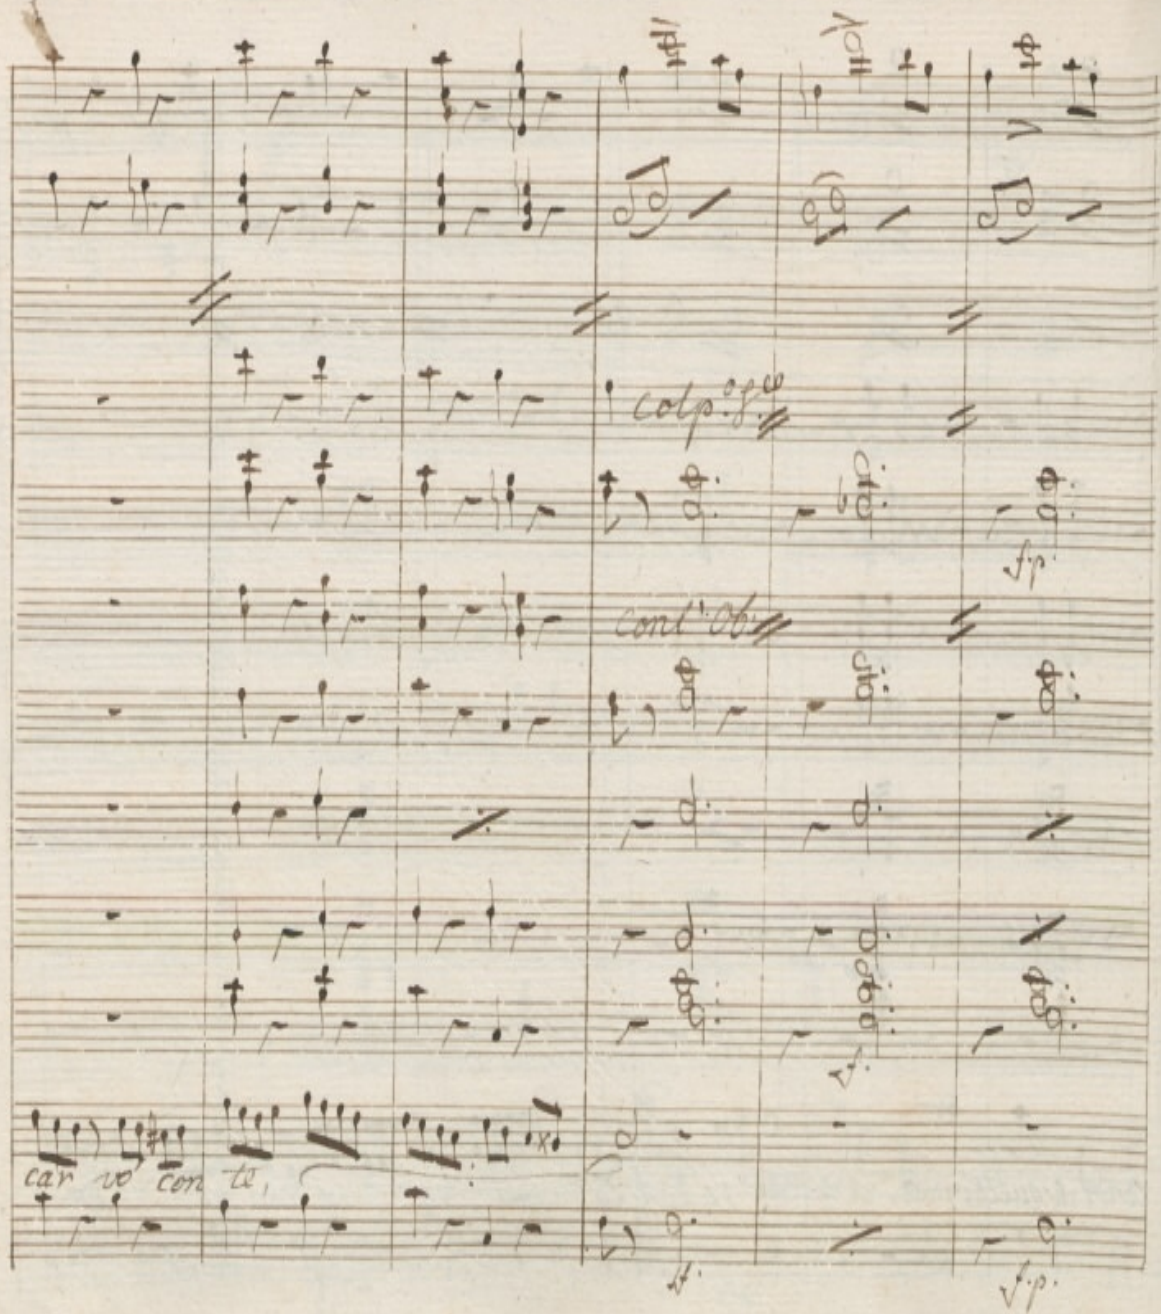 colp.º f.co
f.p.
conl' Ob:
f.
car vo con te,
f.
f.p.